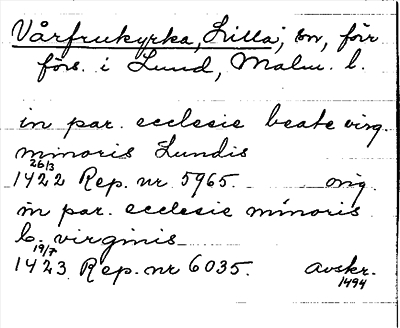 Vårfrukyrka, Lilla, sn, förr
förs. i Lund, Malm. l.
in par. ecclesie beate virg.
minoris Lundis
1422 26/3 Rep. nr 5965. orig.
in par. ecclesie minoris
b. virginis
1423 19/7 Rep. nr 6035. avskr.
1494